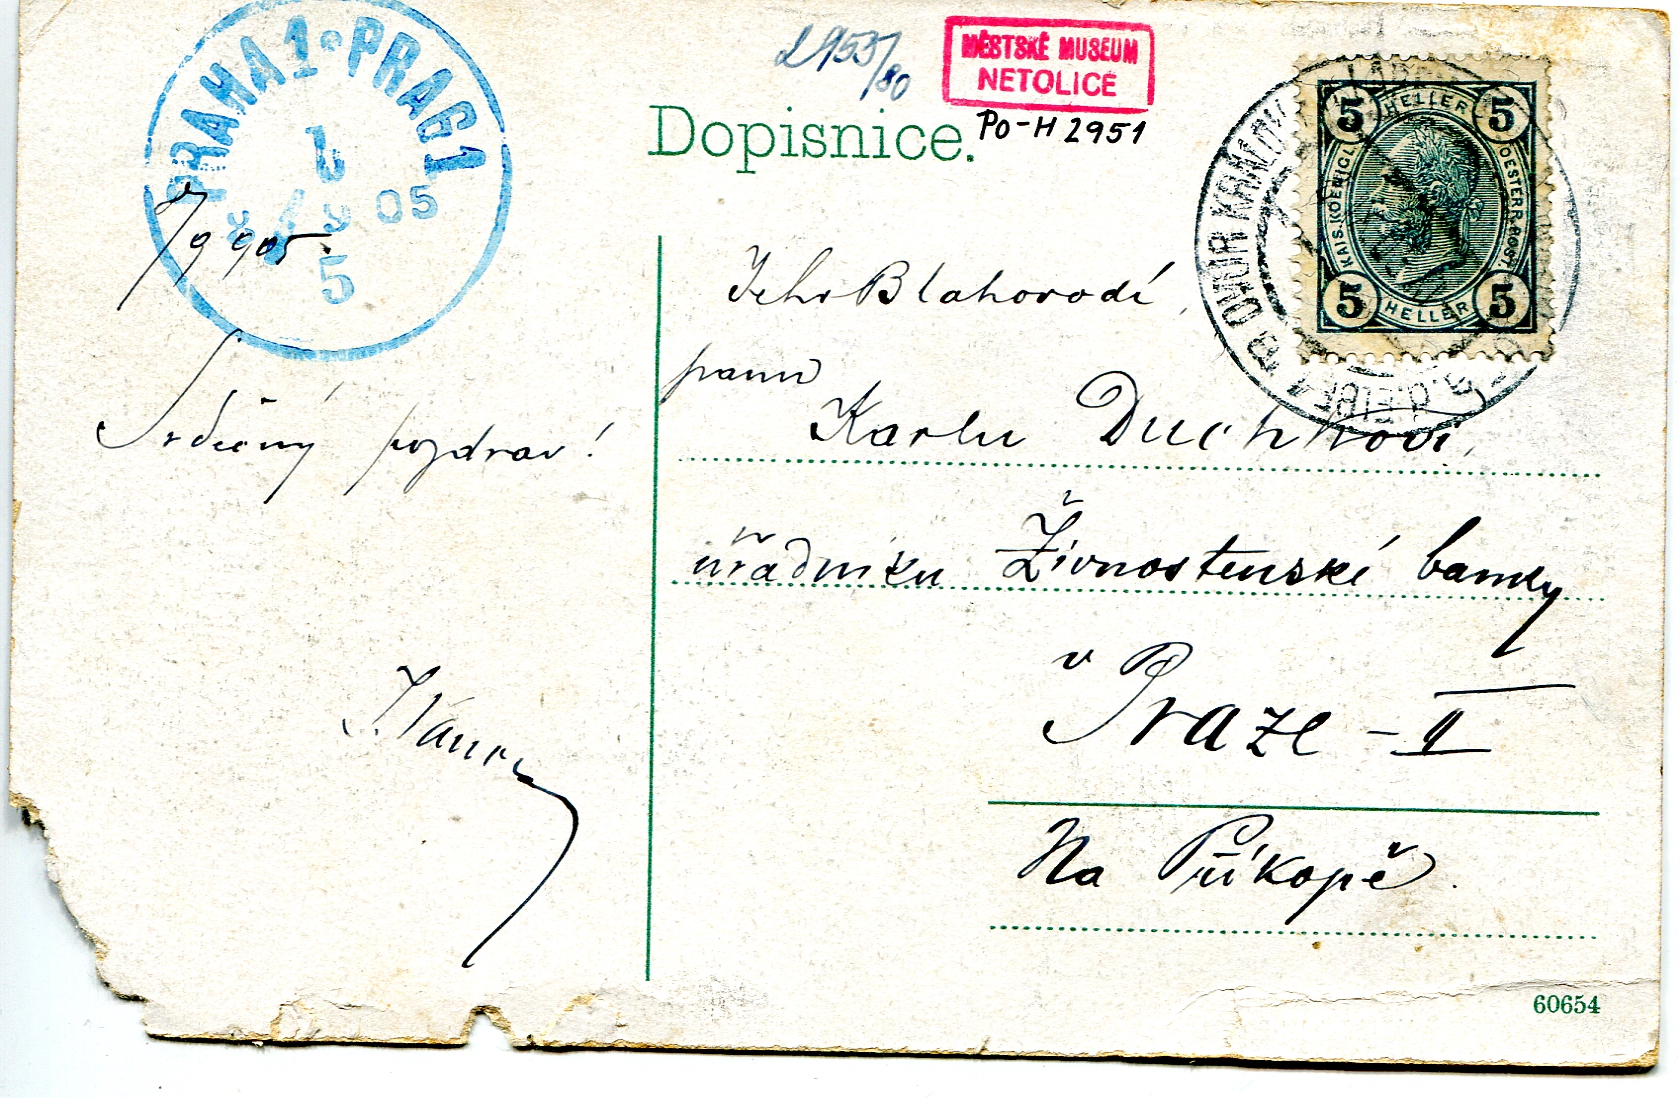 PRAHA 1 * PRAG 1
8 9 05
5
2953/80
MĚSTSKÉ MUSEUM
NETOLICE
Po-H 2951
Dopisnice.
5 HELLER 5
KAIS. KOENIGL. OESTERR. POST
5 HELLER 5
DVŮR KRÁLOVÉ
7/9 905.
Srdečný pozdrav!
Jeho Blahorodí
panu
Karlu Duchkovi,
úřadníku Živnostenské banky
v Praze - II
Na Příkopě.
60654